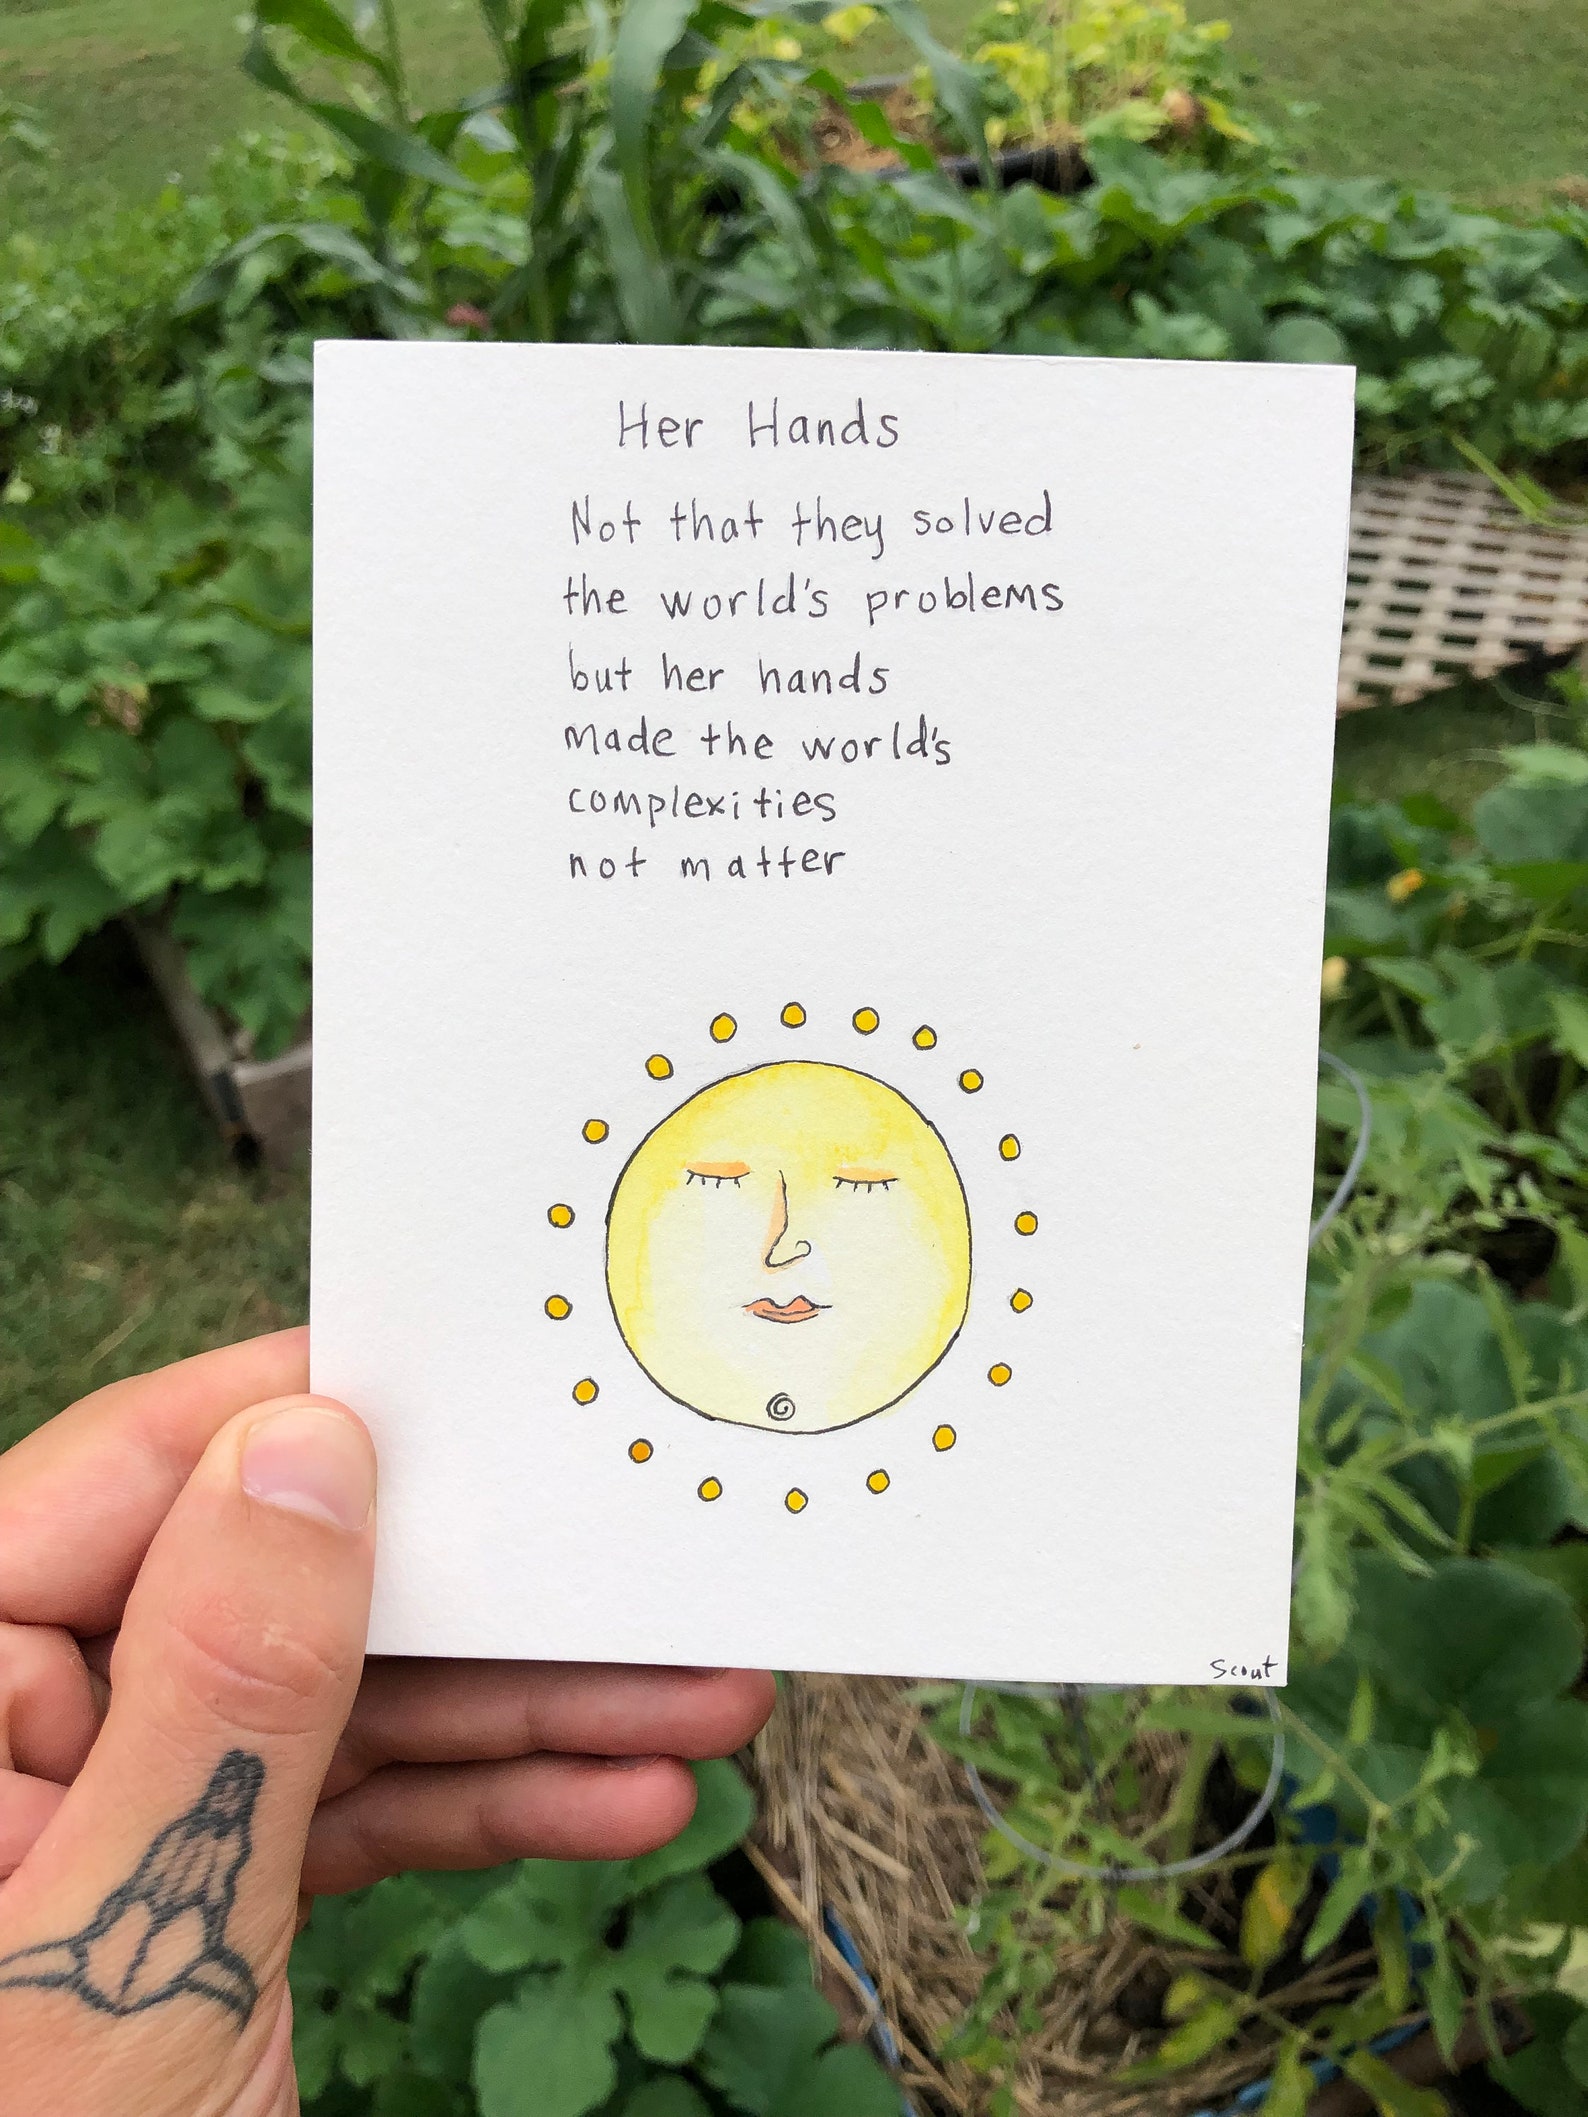 Her Hands
Not that they solved
the world's problems
but her hands
made the world's
complexities
not matter
Scout